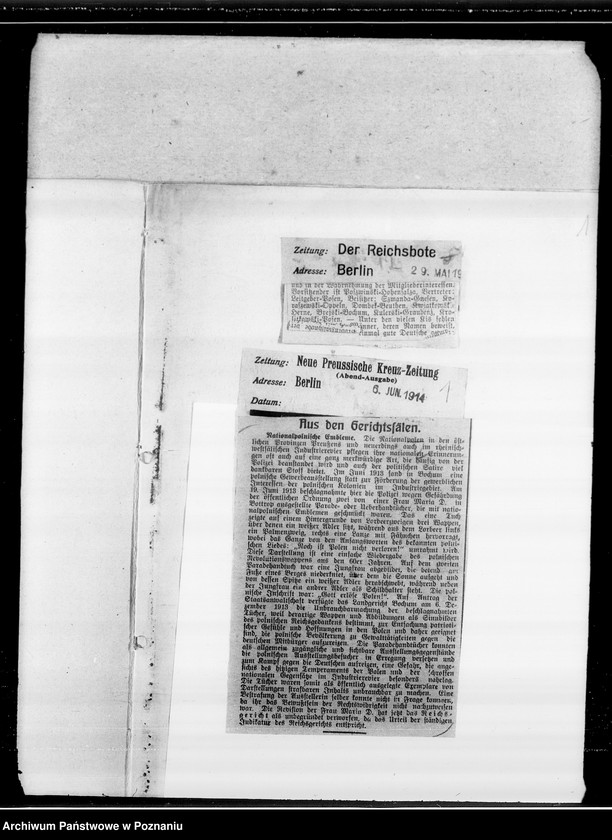 Zeitung: Der Reichsbote
Adresse: Berlin 29. MAI 19
und in der Wahrnehmung der Mitgliederinteressen.
Vorsitzender ist Poszwinski-Hohensalza, Vertreter:
Leitgeber-Posen, Beisitzer: Szmanda-Gnesen, Ko-
raszewski-Oppeln, Dombek-Beuthen, Kwiatkowski-
Herne, Brejski-Bochum, Kulerski-Graudenz, Kro-
Posen. — Unter den vielen Ski fehlen
Männer, deren Namen beweist,
einmal gute Deutsche
Zeitung: Neue Preussische Kreuz-Zeitung
(Abend-Ausgabe)
Adresse: Berlin 6. JUN. 1914
Datum:
1
Aus den Gerichtssälen.
Nationalpolnische Embleme. Die Nationalpolen in den öst-
lichen Provinzen Preußens und neuerdings auch im rheinisch-
westfälischen Industrierevier pflegen ihre nationalen Erinnerun-
gen oft auch auf eine ganz merkwürdige Art, die häufig von der
Polizei beanstandet wird und auch der politischen Satire viel
dankbaren Stoff bietet. Im Juni 1913 fand in Bochum eine
polnische Gewerbeausstellung statt zur Förderung der gewerblichen
Interessen der polnischen Kolonien im Industriegebiet. Am
19. Juni 1913 beschlagnahmte hier die Polizei wegen Gefährdung
der öffentlichen Ordnung zwei von einer Frau Maria D. in
Bottrop ausgestellte Parade- oder Ueberhandtücher, die mit natio-
nalpolnischen Emblemen geschmückt waren. Das eine Tuch
zeigte auf einem Hintergrunde von Lorbeerzweigen drei Wappen,
über denen ein weißer Adler sitzt, während aus dem Lorbeer links
ein Palmenzweig, rechts eine Lanze mit Fähnchen hervorragt,
wobei das Ganze von den Anfangsworten des bekannten polni-
schen Liedes: „Noch ist Polen nicht verloren!“ umrahmt wird.
Diese Darstellung ist eine einfache Wiedergabe des polnischen
Revolutionswappens aus den 60er Jahren. Auf dem zweiten
Paradehandtuch war eine Jungfrau abgebildet, die betend am
Fuße eines Berges niederkniet, über dem die Sonne aufgeht und
von dessen Spitze ein weißer Adler herabschwebt, während neben
der Jungfrau ein andrer Adler als Schildhalter steht. Die pol-
nische Inschrift war: „Gott erlöse Polen!“. Auf Antrag der
Staatsanwaltschaft verfügte das Landgericht Bochum am 6. De-
zember 1913 die Unbrauchbarmachung der beschlagnahmten
Tücher, weil derartige Wappen und Abbildungen als Sinnbilder
des polnischen Reichsgedankens bestimmt, zur Entfachung patrioti-
scher Gefühle und Hoffnungen in den Polen und daher geeignet
sind, die polnische Bevölkerung zu Gewalttätigkeiten gegen die
deutschen Mitbürger aufzureizen. Die Paradehandtücher konnten
als allgemein zugängliche und sichtbare Ausstellungsgegenstände
die polnischen Ausstellungsbesucher in Erregung versetzen und
zum Kampf gegen die Deutschen aufreizen, eine Gefahr, die ange-
sichts des hitzigen Temperaments der Polen und der schroffen
nationalen Gegensätze im Industrierevier besonders nahelag.
Die Tücher waren somit als öffentlich ausgelegte Exemplare von
Darstellungen strafbaren Inhalts unbrauchbar zu machen. Eine
Bestrafung der Ausstellerin selber konnte nicht in Frage kommen,
da ihr das Bewußtsein der Rechtswidrigkeit nicht nachzuweisen
war. Die Revision der Frau Maria D. hat jetzt das Reichs-
gericht als unbegründet verworfen, da das Urteil der ständigen
Judikatur des Reichsgerichts entspricht.
Archiwum Państwowe w Poznaniu